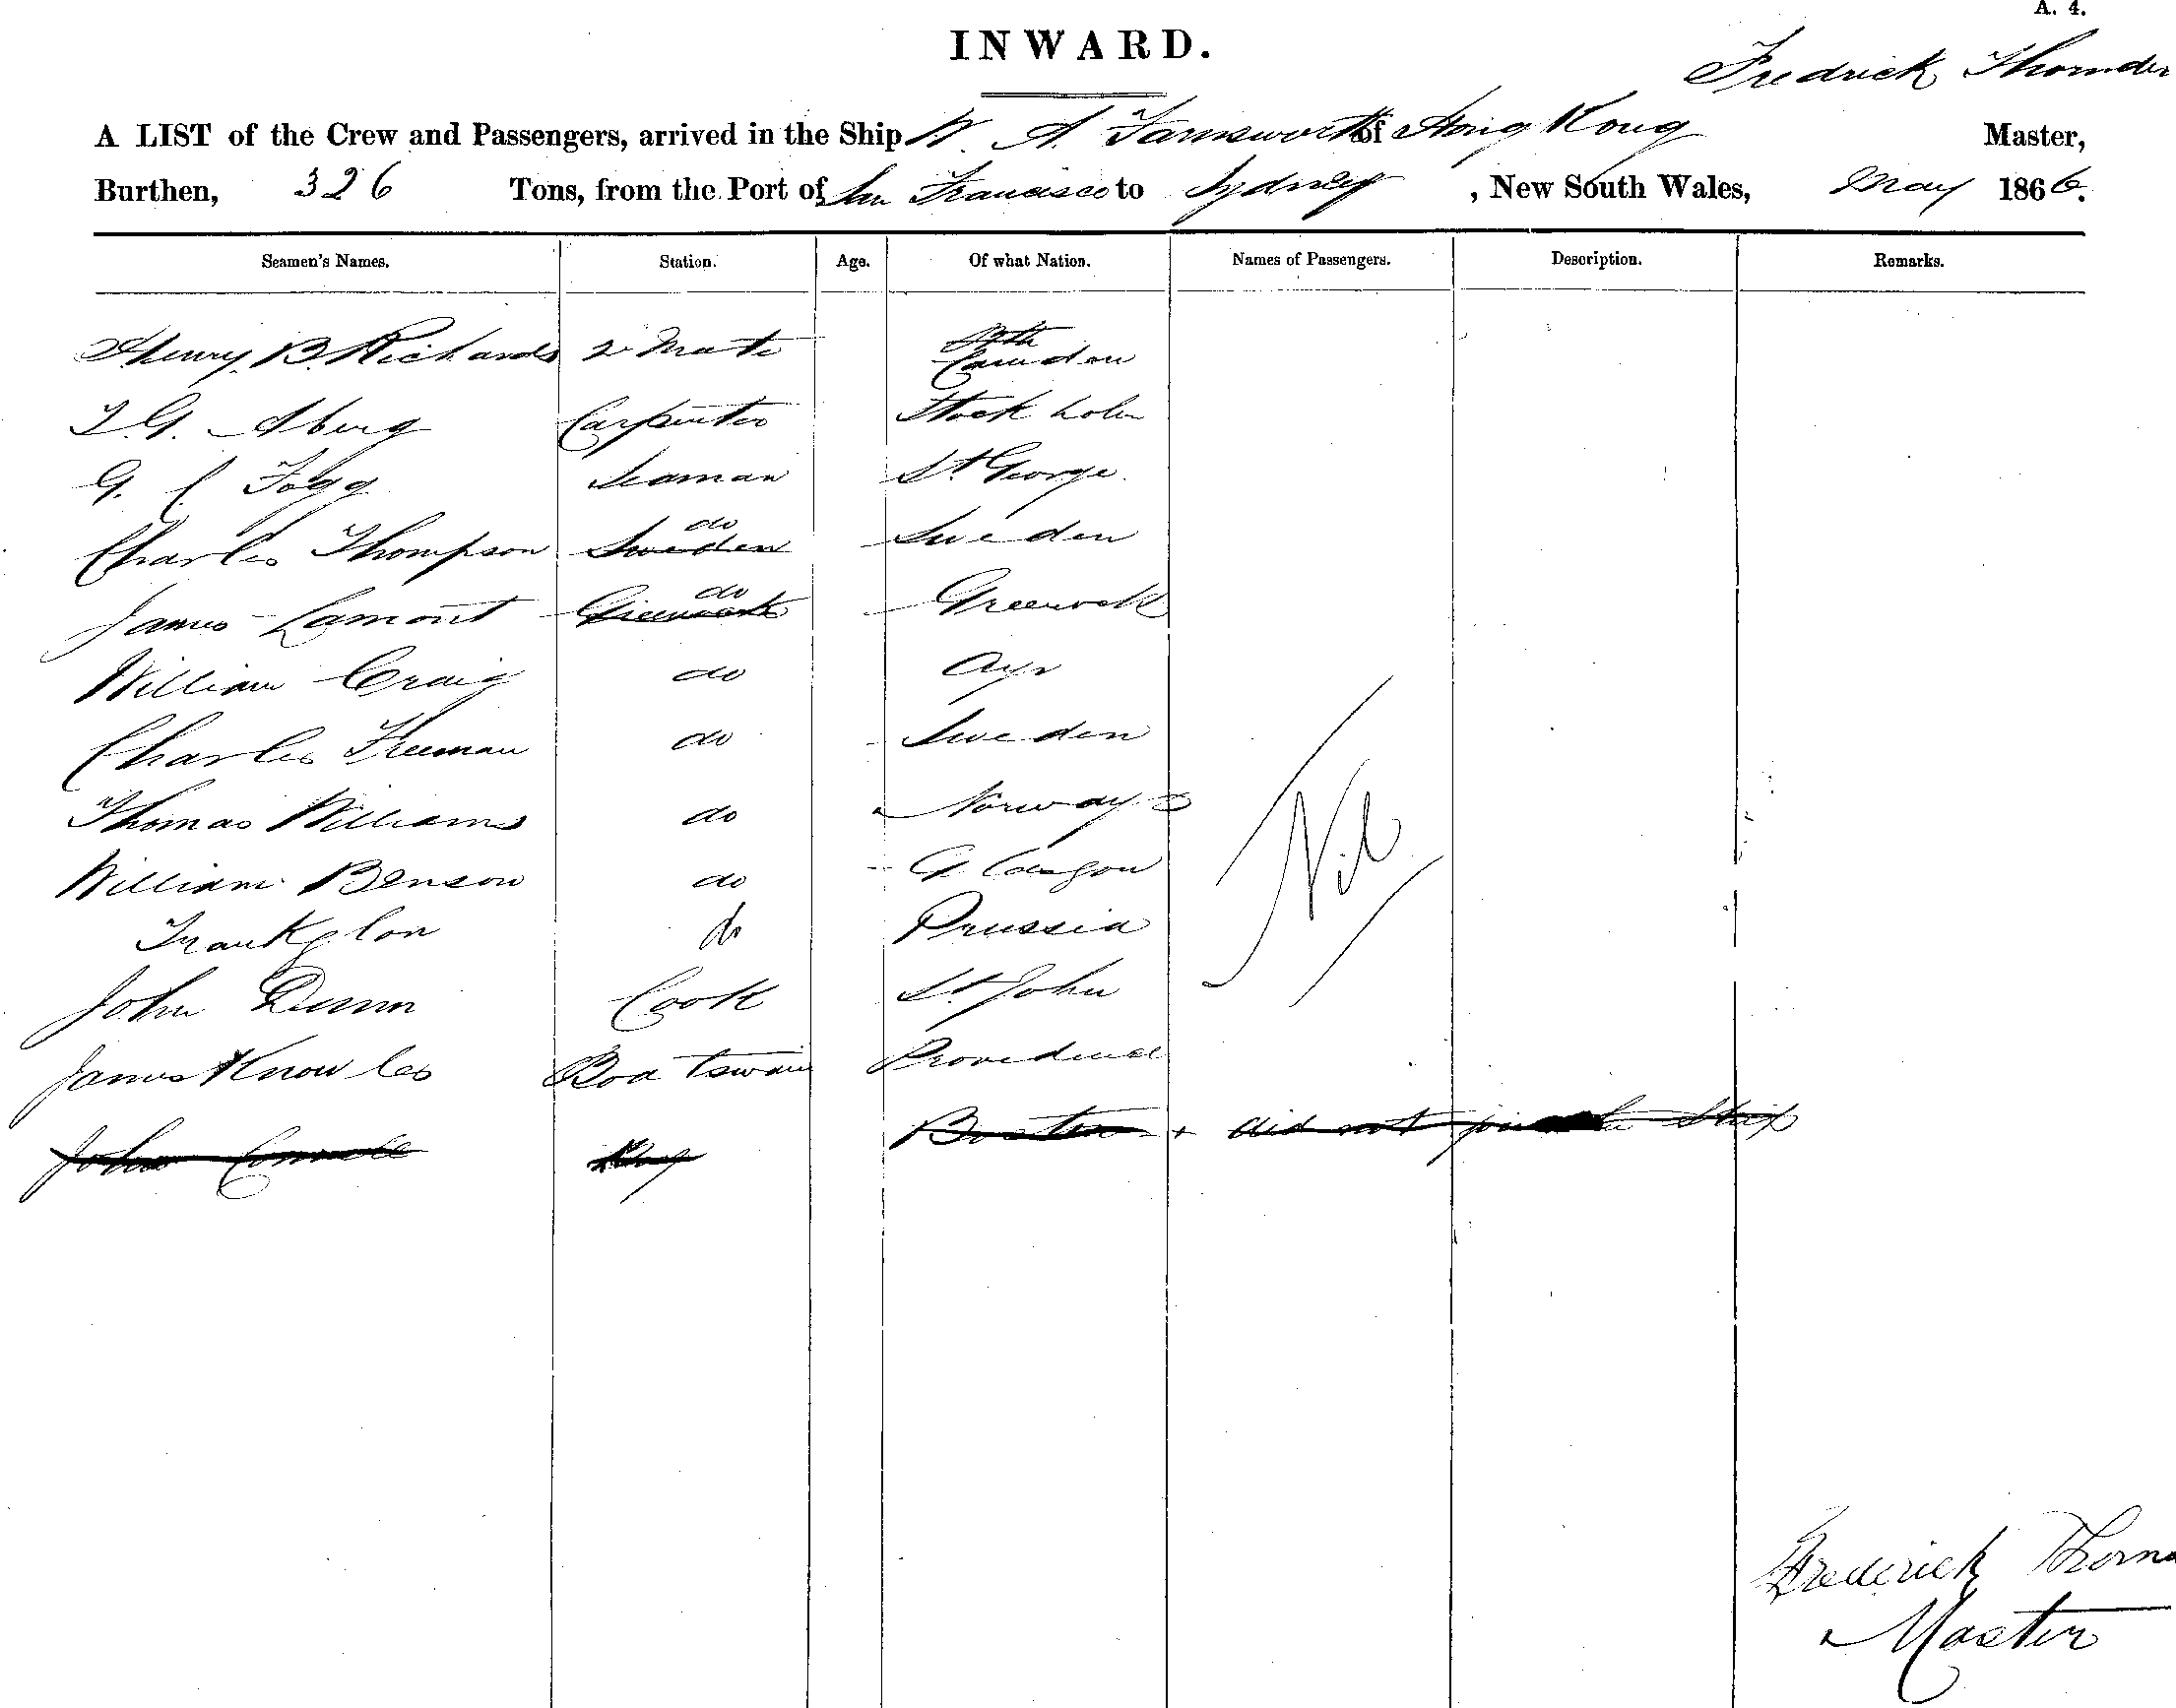 A. 4.
INWARD.
Fredrick Thornder
A LIST of the Crew and Passengers, arrived in the Ship W. A. Farnsworth of Hong Kong Master,
Burthen, 326 Tons, from the Port of San Francisco to Sydney, New South Wales, May 1866.
Seamen's Names. Station. Age. Of what Nation. Names of Passengers. Description. Remarks.
Henry B. Richards 2 Mate Camden
Aberg Carpenter Stockholm
G. C. Fogg Seaman St. George.
Charles Thompson Sweden do Sweden
James Lamont Greenock do Greenock
William Craig do Ayr
Charles Freeman do Sweden
Thomas Williams do Norway
William Benson do Glasgow
do Prussia
John Dunn Cook St. John
James Knowles Boatswain Providence
Nil
John Boston + did not ship
Frederick Thorn
Master